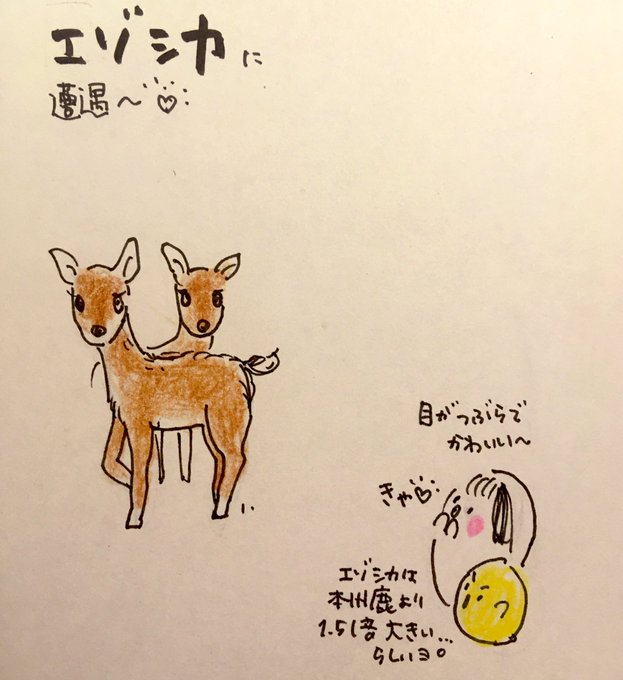 エゾシカに
遭遇〜♡
目がつぶらで
かわいい〜
きゃ♡
エゾシカは
本州鹿より
1.5倍大きい…
らしいヨ。